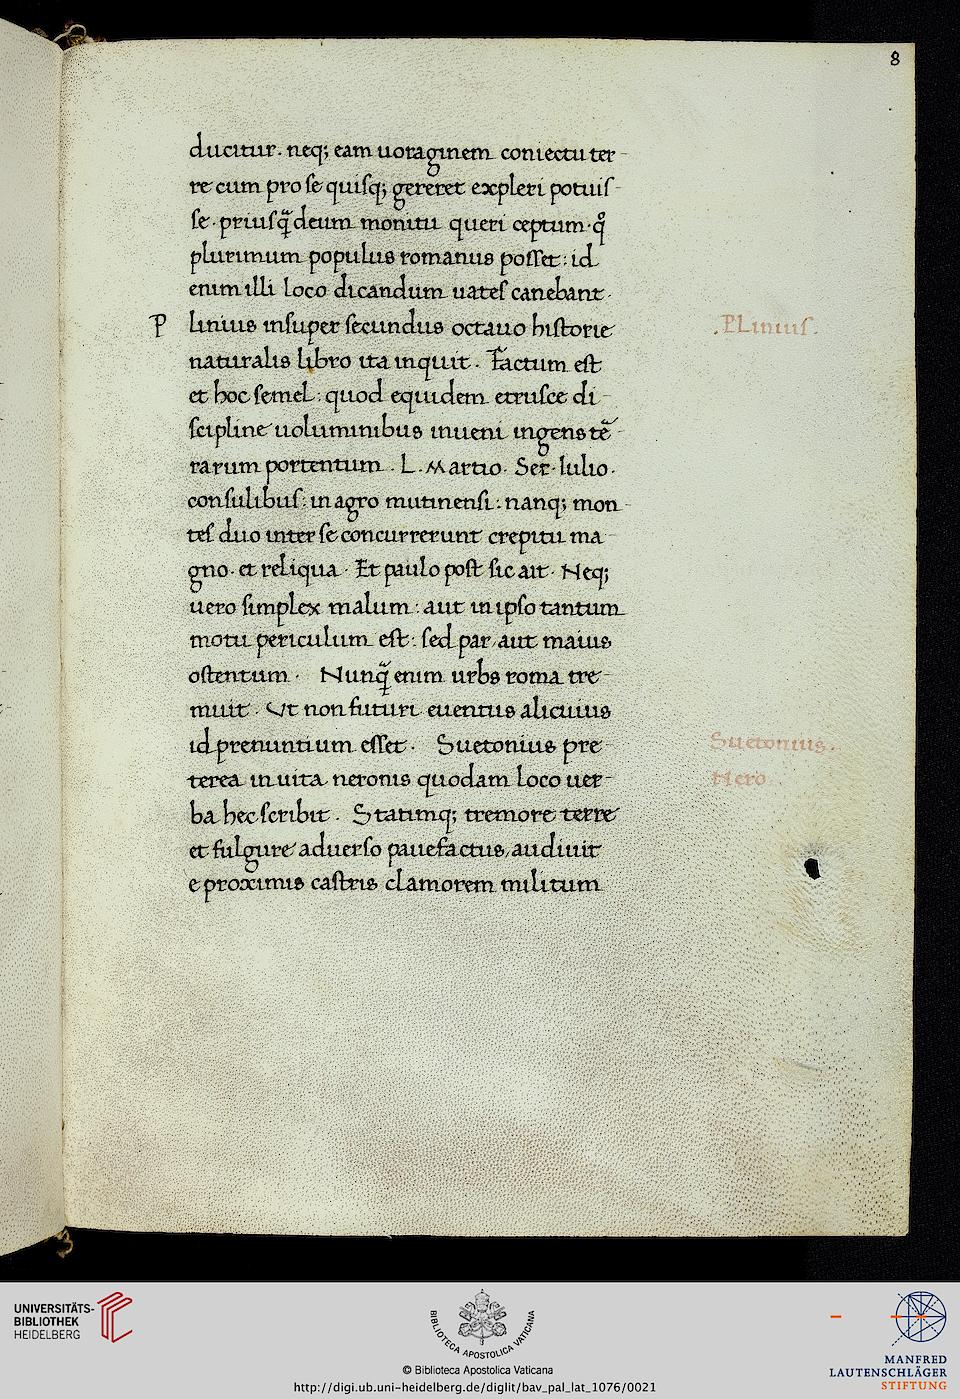 8
ducitur. neq; eam uoraginem coniectu ter-
re cum pro se quisq; gereret expleri potuis-
se. priusq̃ deum monitu queri ceptum. qͦ
plurimum populus romanus posset: id
enim illi loco dicandum uates canebant.
Plinius insuper secundus octauo historie
.PLinius.
naturalis libro ita inquit. Factum est
et hoc semel: quod equidem etrusce di-
scipline uoluminibus inueni ingens tẽ-
rarum portentum. L. Martio. Ser. Iulio.
consulibus: in agro mutinensi: nanq; mon-
tes duo inter se concurrerunt crepitu ma-
gno. et reliqua. Et paulo post sic ait. Neq;
uero simplex malum: aut in ipso tantum
motu periculum est: sed par aut maius
ostentum. Nunq̃ enim urbs roma tre-
muit. Ut non futuri euentus alicuius
id prenuntium esset. Suetonius pre-
Suetonius.
terea in uita neronis quodam loco uer-
Nero
ba hec scribit. Statimq; tremore terre
et fulgure aduerso pauefactus, audiuit
e proximis castris clamorem militum
UNIVERSITÄTS-
BIBLIOTHEK
HEIDELBERG
BIBLIOTECA APOSTOLICA VATICANA
© Biblioteca Apostolica Vaticana
http://digi.ub.uni-heidelberg.de/diglit/bav_pal_lat_1076/0021
MANFRED
LAUTENSCHLÄGER
STIFTUNG